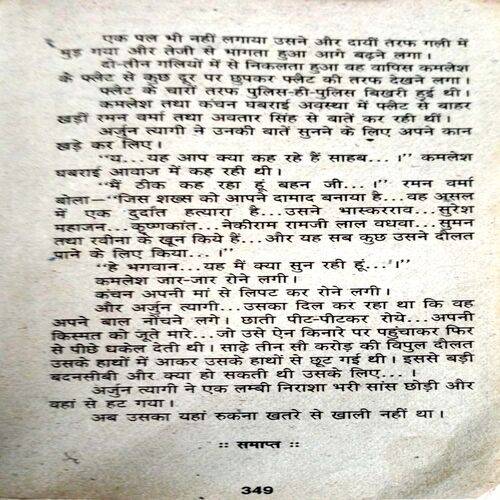 एक पल भी नहीं लगाया उसने और दायीं तरफ गली में
मुड़ गया और तेजी से भागता हुआ आगे बढ़ने लगा।
दो-तीन गलियों में से निकलता हुआ वह वापिस कमलेश
के फ्लैट से कुछ दूर पर छुपकर फ्लैट की तरफ देखने लगा।
फ्लैट के चारों तरफ पुलिस-ही-पुलिस बिखरी हुई थी।
कमलेश तथा कंचन घबराई अवस्था में फ्लैट से बाहर
खड़ीं रमन वर्मा तथा अवतार सिंह से बातें कर रही थीं।
अर्जुन त्यागी ने उनकी बातें सुनने के लिए अपने कान
खड़े कर लिए।
“य...यह आप क्या कह रहे हैं साहब...।” कमलेश
घबराई आवाज में कह रही थी।
“मैं ठीक कह रहा हूं बहन जी...।” रमन वर्मा
बोला—“जिस शख्स को आपने दामाद बनाया है...वह असल
में एक दुर्दांत हत्यारा है...उसने भास्करराव...सुरेश
महाजन...कृष्णकांत...नेकीराम रामजी लाल वधवा...सुमन
तथा रवीना के खून किये हैं...और यह सब कुछ उसने दौलत
पाने के लिए किया...।”
“हे भगवान...यह मैं क्या सुन रही हूं...।”
कमलेश जार-जार रोने लगी।
कंचन अपनी मां से लिपट कर रोने लगी।
और अर्जुन त्यागी...उसका दिल कर रहा था कि वह
अपने बाल नोंचने लगे। छाती पीट-पीटकर रोये...अपनी
किस्मत को जूते मारे...जो उसे ऐन किनारे पर पहुंचाकर फिर
से पीछे धकेल देती थी। साढ़े तीन सौ करोड़ की विपुल दौलत
उसके हाथों में आकर उसके हाथों से छूट गई थी। इससे बड़ी
बदनसीबी और क्या हो सकती थी उसके लिए...।
अर्जुन त्यागी ने एक लम्बी निराशा भरी सांस छोड़ी और
वहां से हट गया।
अब उसका यहां रुकना खतरे से खाली नहीं था।
:: समाप्त ::
349